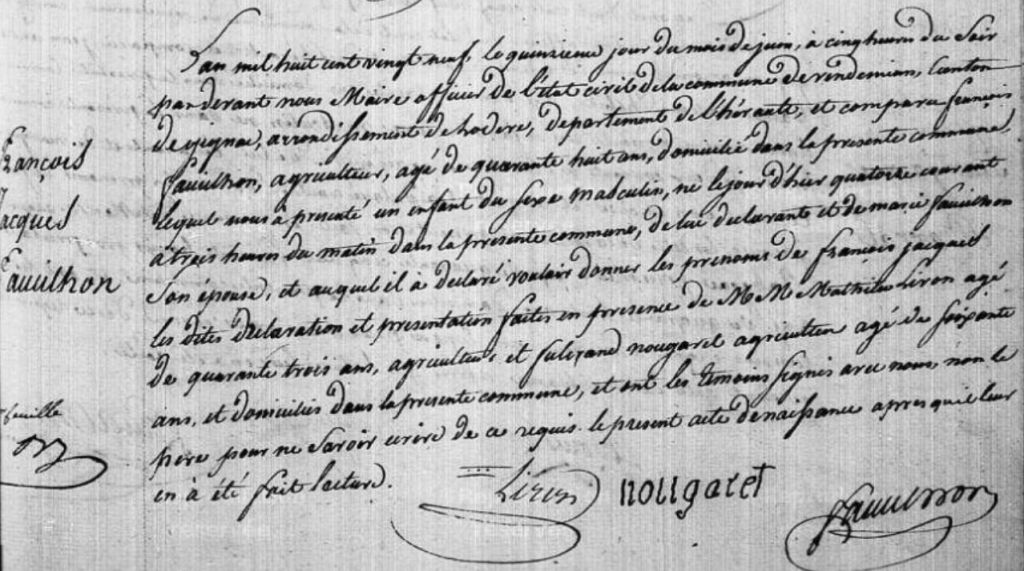 L'an mil huit cent vingt neuf, le quinzieme jour du mois de juin, à cinq heures du soir
par devant nous Maire officier de l'état civil de la commune de vendemian, Canton
de gignac, arrondissement de lodeve, departement de l'hérault, et comparu françois
fauvilhon, agriculteur, agé de quarante huit ans, domicilié dans la presente commune,
lequel nous à presenté un enfant du sexe masculin, né le jour d'hier quatorze courant
à trois heures du matin dans la presente commune, de lui declarant et de marie fauvilhon
son épouse, et auquel il à declaré vouloir donner les prenoms de francois jacques
les dites declaration et presentation faites en presence de M M Mathieu Liron agé
de quarante trois ans, agriculteur et nougaret agriculteur agé de soixante
ans, et domiciliés dans la presente commune, et ont les temoins signés avec nous, non le
pere pour ne savoir ecrire de ce requis. le present acte de naissance apres qu'il leur
en à été fait lecture.
François
Jacques
Fauvilhon
feuille
Liron nougaret
fauvilhon